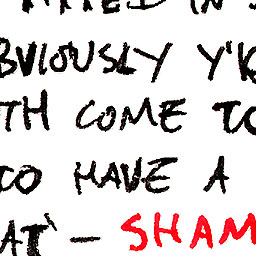 IN
BVIOUSLY Y'K
TH COME TO
TO HAVE A
AT' - SHAM